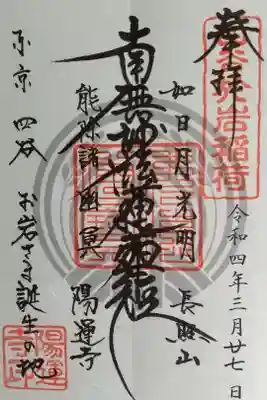 奉拝
令和四年三月廿七日
如日月光明
長照山
南無妙法蓮華経
能除諸幽冥
陽運寺
東京四谷 お岩さま誕生の地
陽運寺印